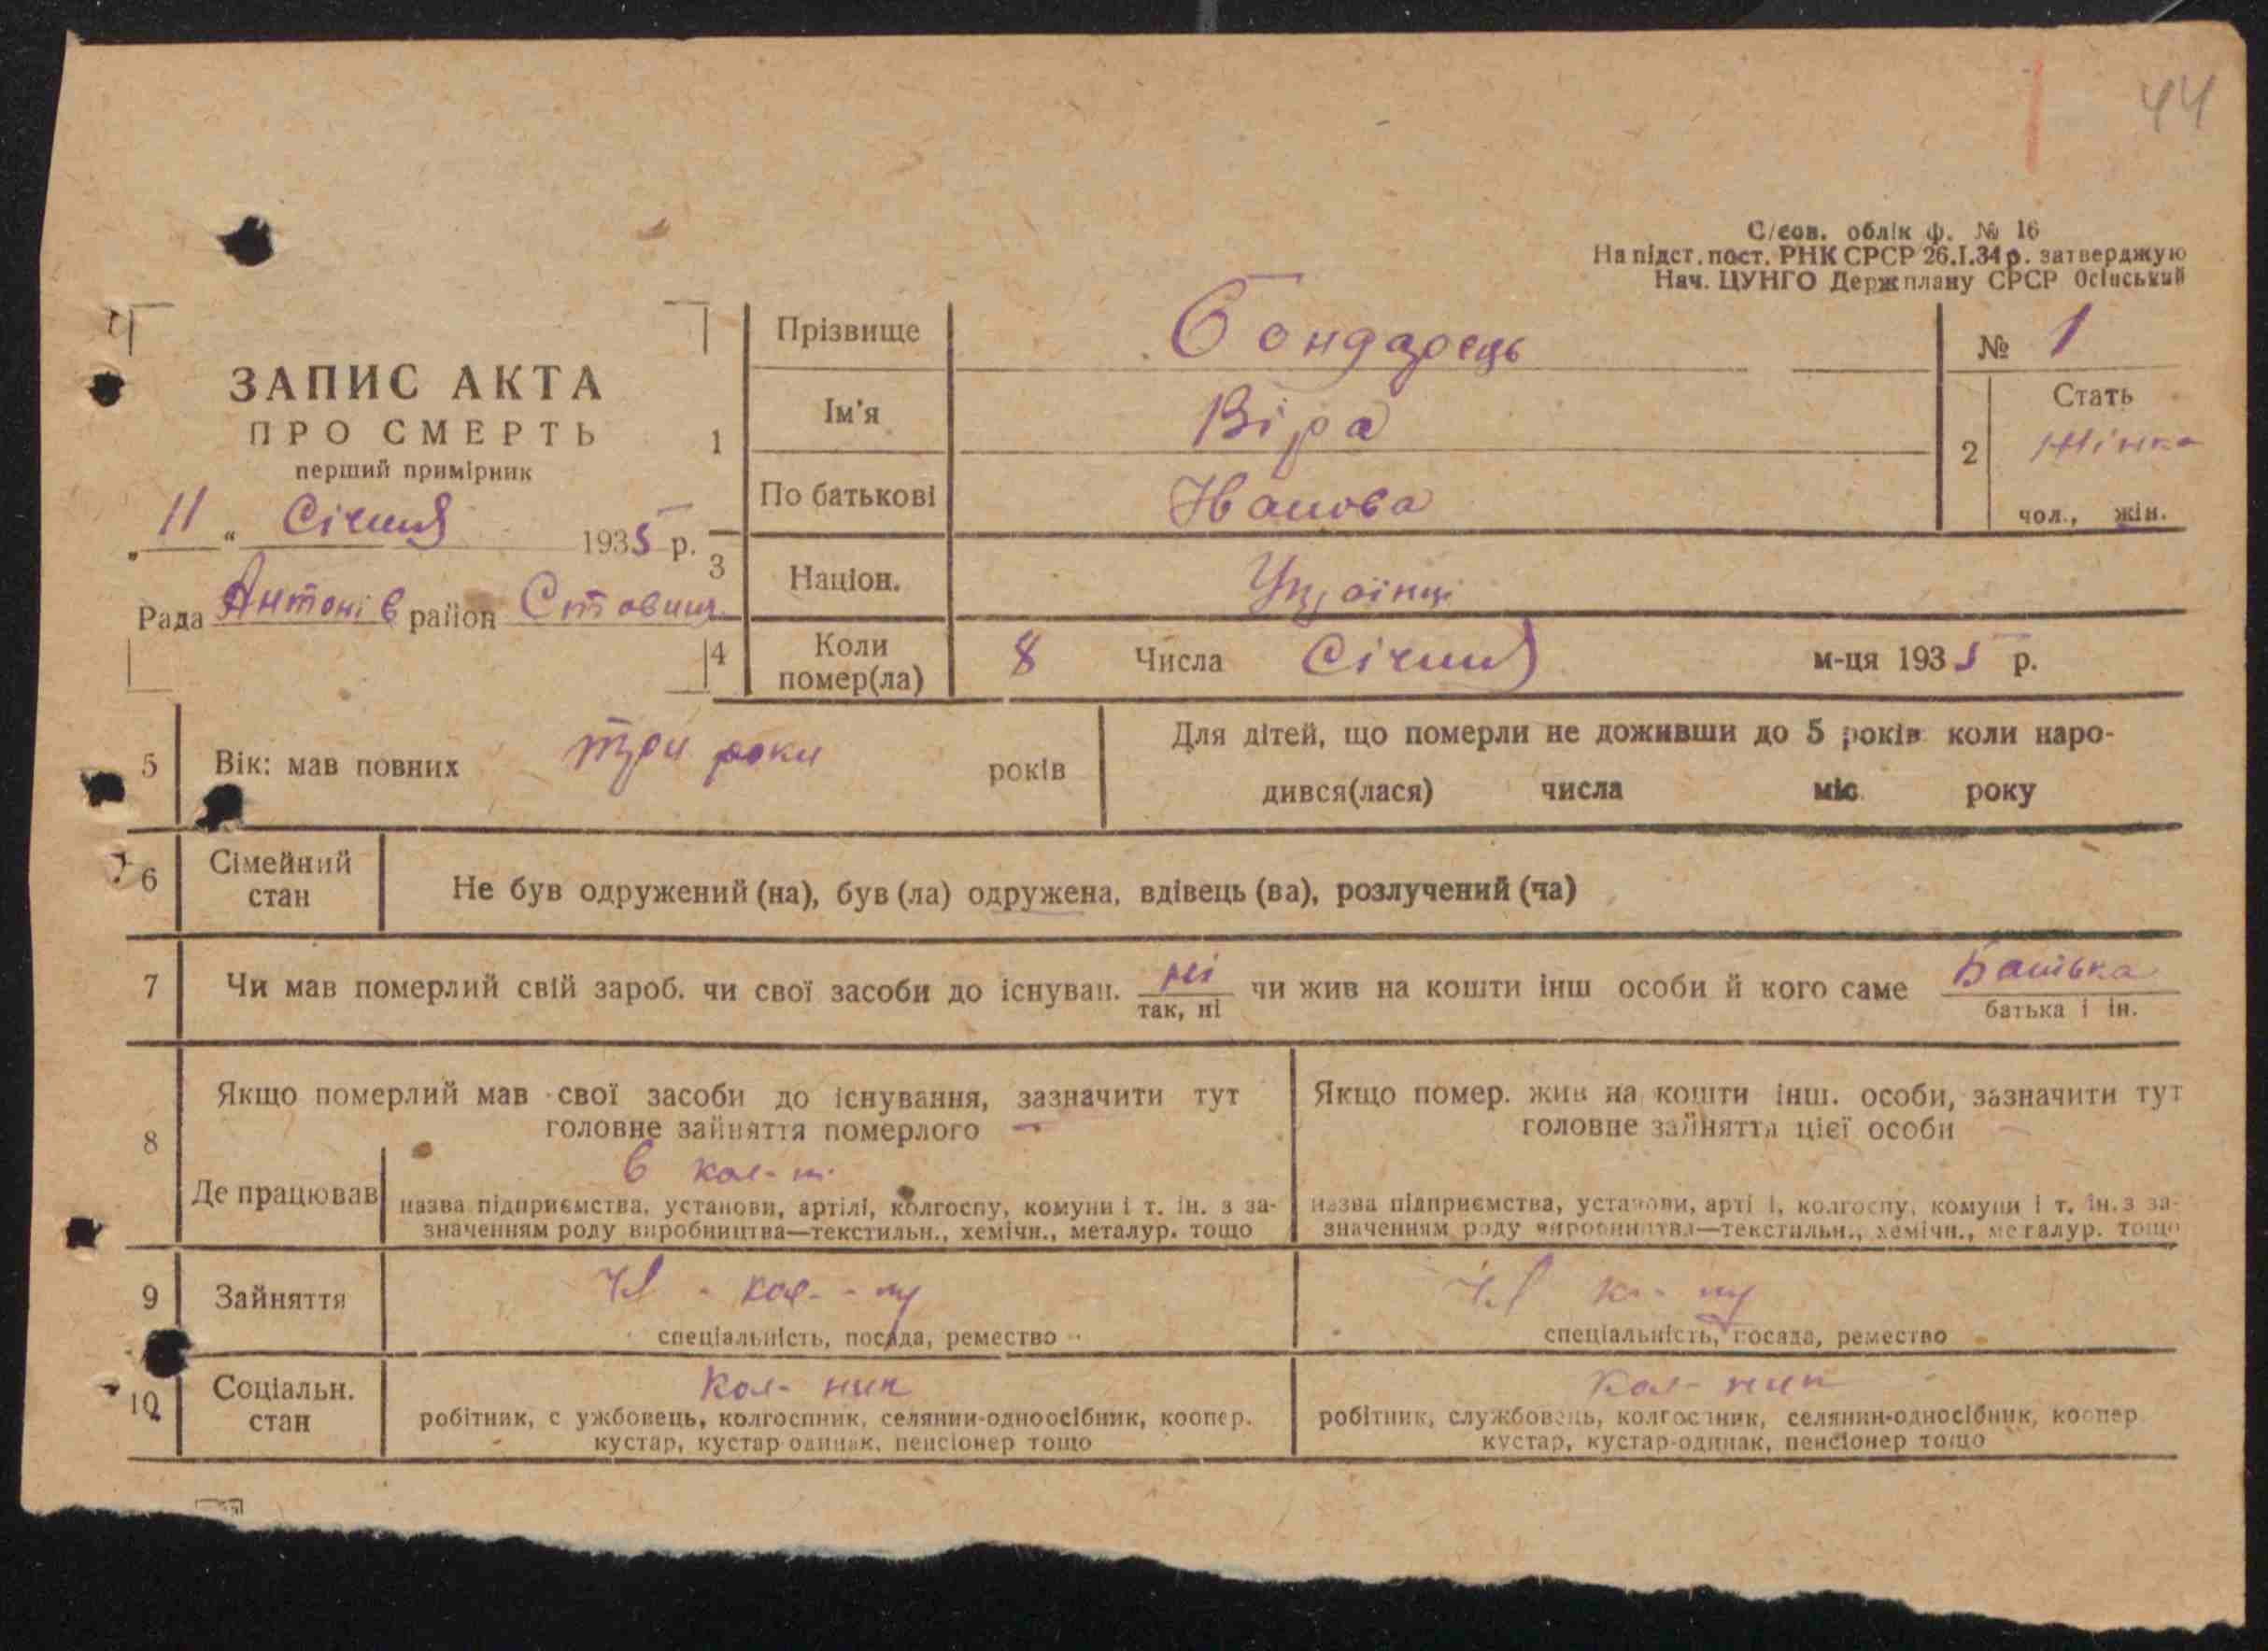 44
С/сов. облік ф. № 16
На підст. пост. РНК СРСР 26.I.34 р. затверджую
Нач. ЦУНГО Держплану СРСР Осінський
ЗАПИС АКТА
ПРО СМЕРТЬ
перший примірник
„ 11 “ Січня 1935 р.
Рада Антонів район Ставищ.
1 Прізвище Бондарець
№ 1
Ім'я Віра
2 Стать жінка
чол., жін.
По батькові Іванова
3 Націон. Українці
4 Коли помер(ла) 8 Числа Січня м-ця 1935 р.
5 Вік: мав повних три роки років
Для дітей, що померли не доживши до 5 років коли наро-
дився(лася) числа міс. року
6 Сімейний стан Не був одружений (на), був (ла) одружена, вдівець (ва), розлучений (ча)
7 Чи мав померлий свій зароб. чи свої засоби до існуван. ні чи жив на кошти інш особи й кого саме Батька
так, ні батька і ін.
8 Якщо померлий мав свої засоби до існування, зазначити тут
головне зайняття померлого —
Якщо помер. жив на кошти інш. особи, зазначити тут
головне зайняття цієї особи
Де працював в кол-
назва підприємства, установи, артілі, колгоспу, комуни і т. ін. з за-
значенням роду виробництва—текстильн., хемічн., металур. тощо
назва підприємства, установи, артілі, колгоспу, комуни і т. ін. з за-
значенням роду виробництва—текстильн., хемічн., металур. тощо
9 Зайняття Чл. кол-пу
спеціальність, посада, ремество
Чл к-пу
спеціальність, посада, ремество
10 Соціальн. стан Кол-ник
робітник, с ужбовець, колгоспник, селянин-одноосібник, коопер.
кустар, кустар одинак, пенсіонер тощо
Кол-ник
робітник, службовець, колгоспник, селянин-односібник, коопер
кустар, кустар-одинак, пенсіонер тощо